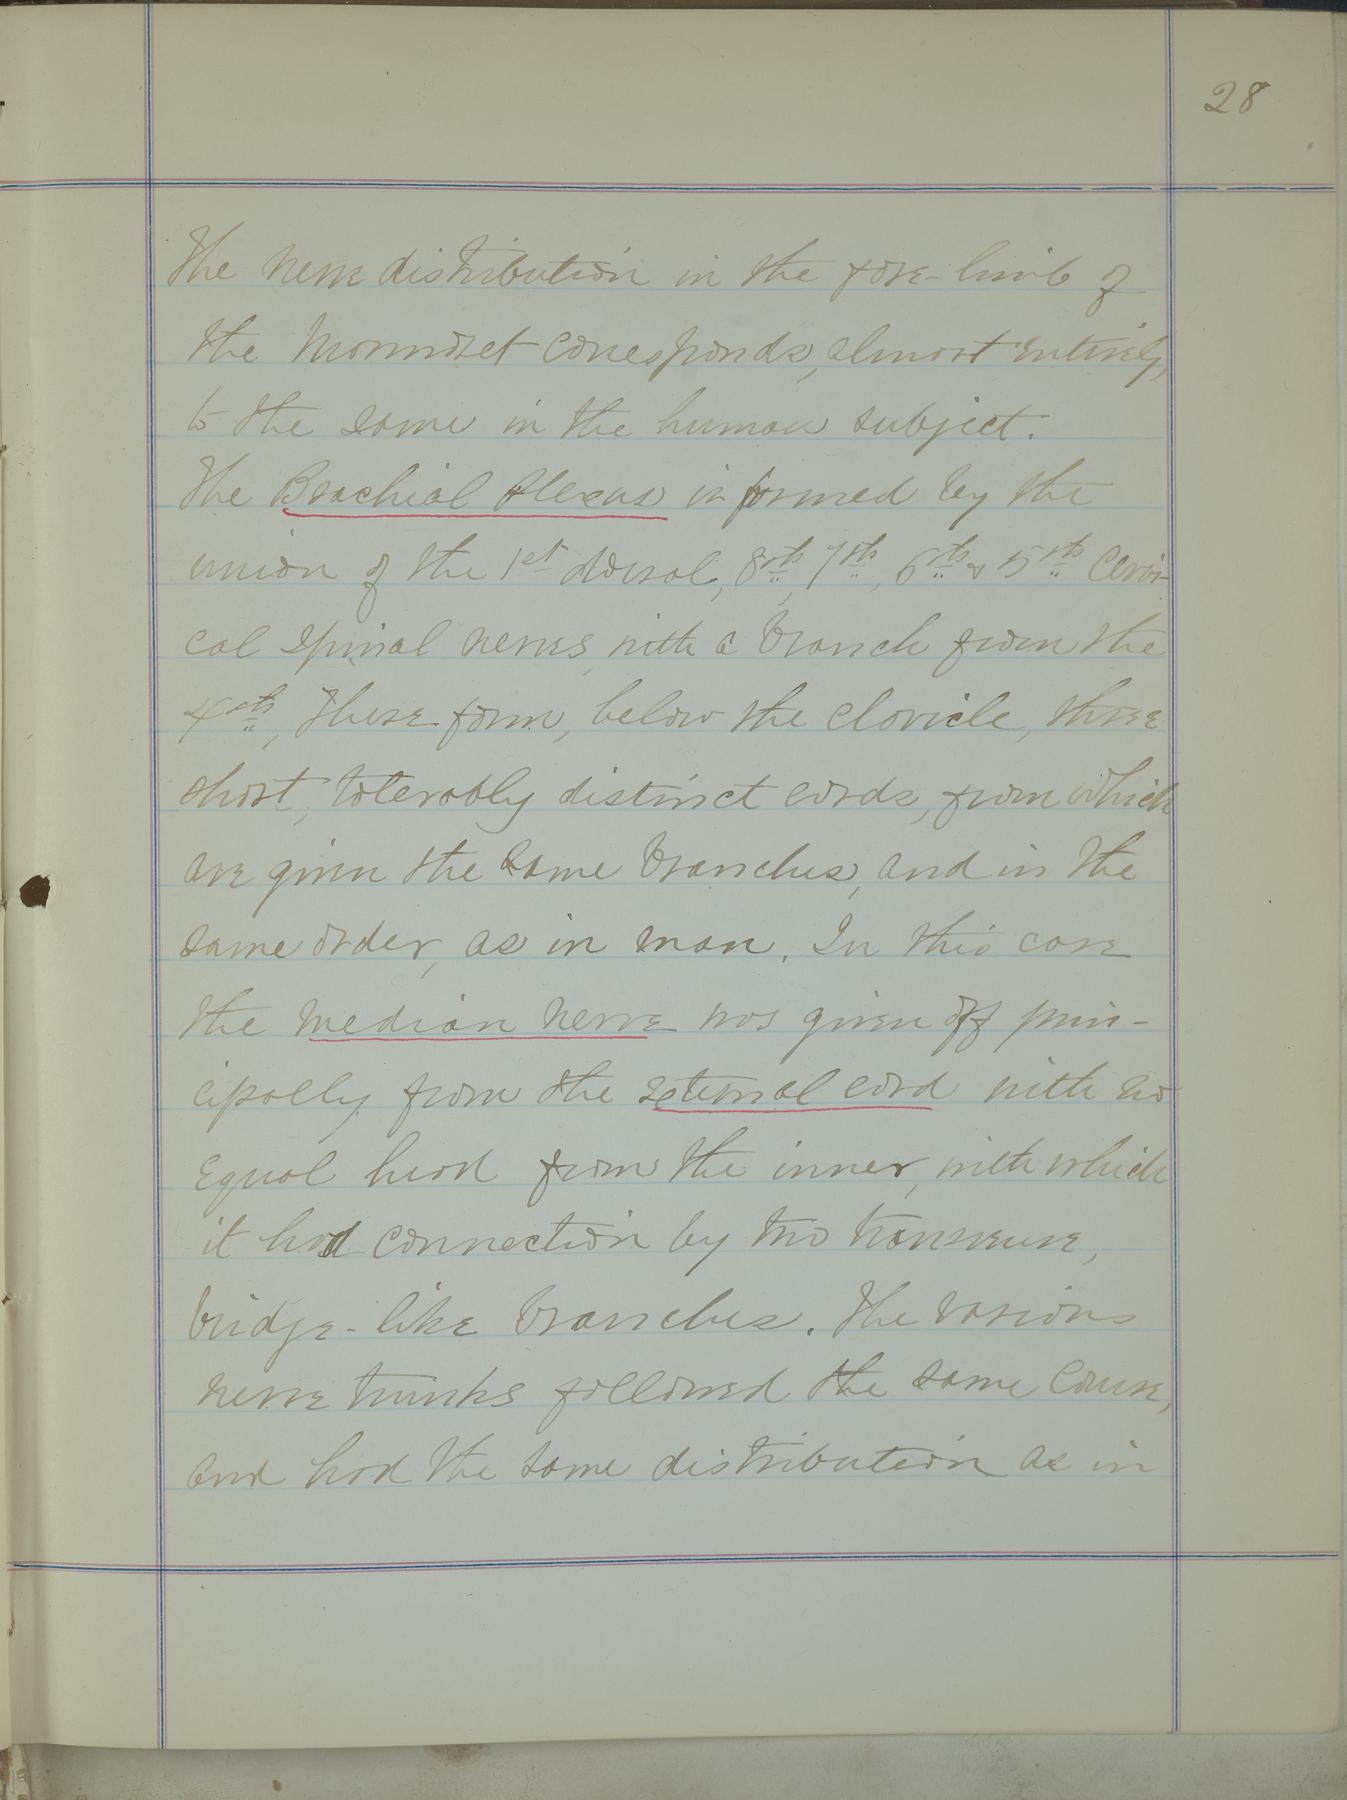 28
The nerve distribution in the fore-limb of
the Marmoset corresponds, almost entirely,
to the same in the human subject.
The Brachial plexus is formed by the
union of the 1st dorsal, 8th, 7th, 6th & 5th Cervi-
cal spinal nerves, with a branch from the
4th, these form, below the clavicle, three
short, tolerably distinct cords, from which
are given the same branches, and in the
same order, as in man. In this case
the median nerve was given off prin-
cipally from the external cord with no
equal head from the inner, with which
it had connection by two transverse,
bridge-like branches. The various
nerve trunks followed the same course,
and had the same distribution as in